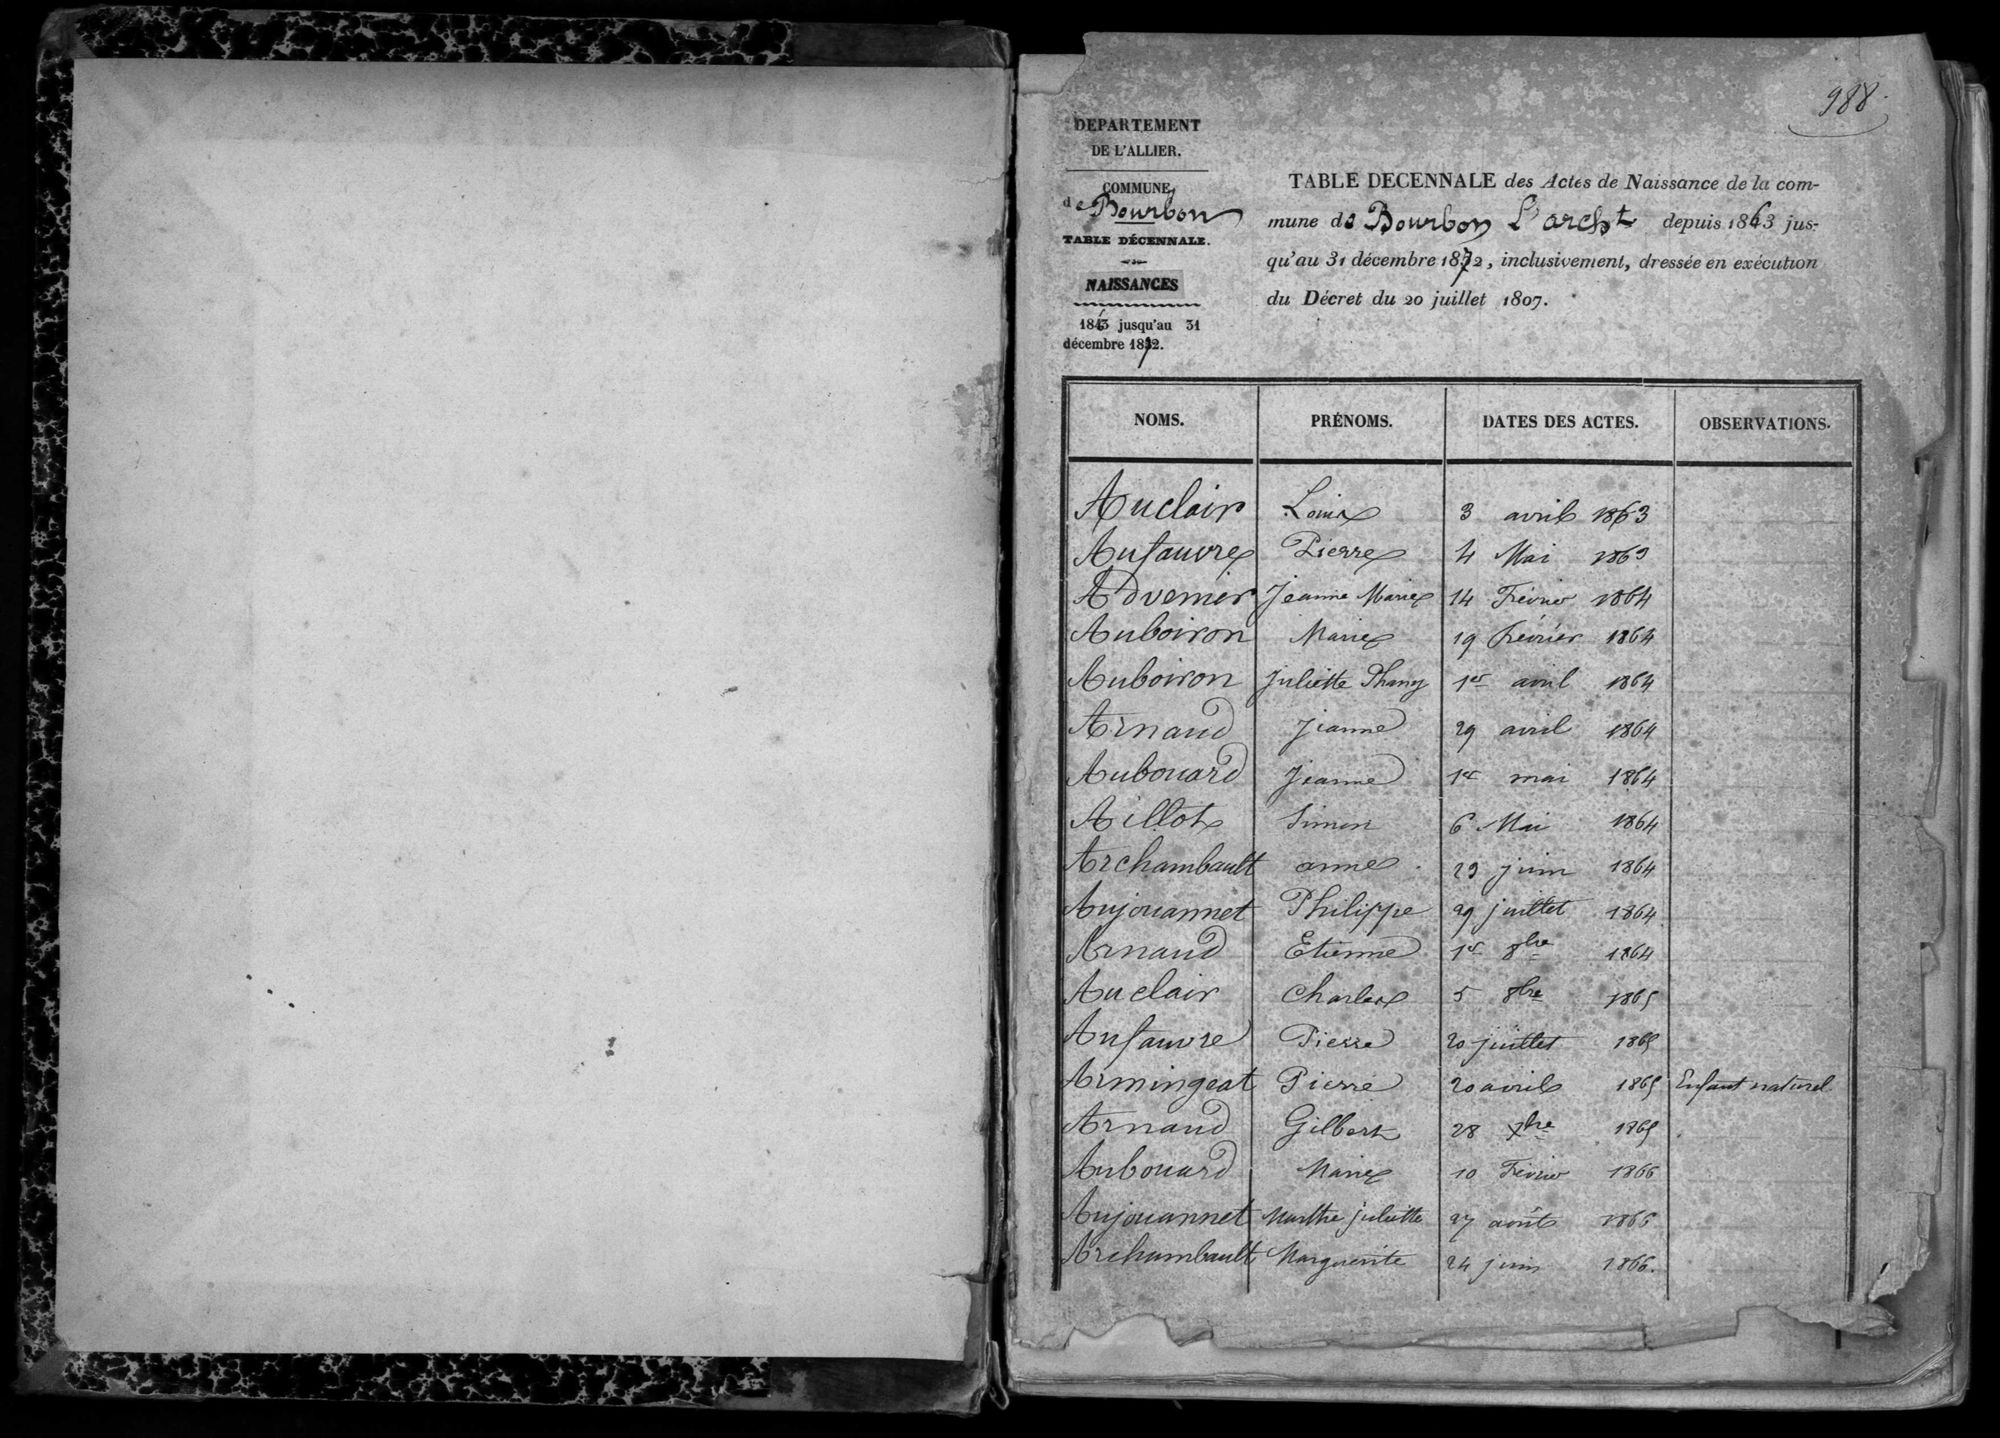 988.
DEPARTEMENT
DE L'ALLIER.
COMMUNE
de Bourbon
TABLE DÉCENNALE.
NAISSANCES
1863 jusqu'au 31
décembre 1872.
TABLE DECENNALE des Actes de Naissance de la com-
mune de Bourbon L'archt depuis 1863 jus-
qu'au 31 décembre 1872, inclusivement, dressée en exécution
du Décret du 20 juillet 1807.
NOMS. PRÉNOMS. DATES DES ACTES. OBSERVATIONS.
Auclair Louis 3 avril 1863
Aufauvre Pierre 4 Mai 1863
Advenier Jeanne Marie 14 Février 1864
Auboiron Marie 19 Février 1864
Auboiron Juliette Phany 1er avril 1864
Arnaud Jeanne 29 avril 1864
Aubouard Jeanne 1er mai 1864
Aillot Simon 6 Mai 1864
Archambault anne 23 juin 1864
Aujouannet Philippe 29 juillet 1864
Arnaud Etienne 1er 8bre 1864
Auclair Charles 5 8bre 1865
Aufauvre Pierre 20 juillet 1865
Armingeat Pierre 20 avril 1865 Enfant naturel
Arnaud Gilbert 28 xbre 1865
Aubouard Marie 10 Février 1866
Aujouannet Marthe juliette 27 août 1866
Archambault Marguerite 24 juin 1866.